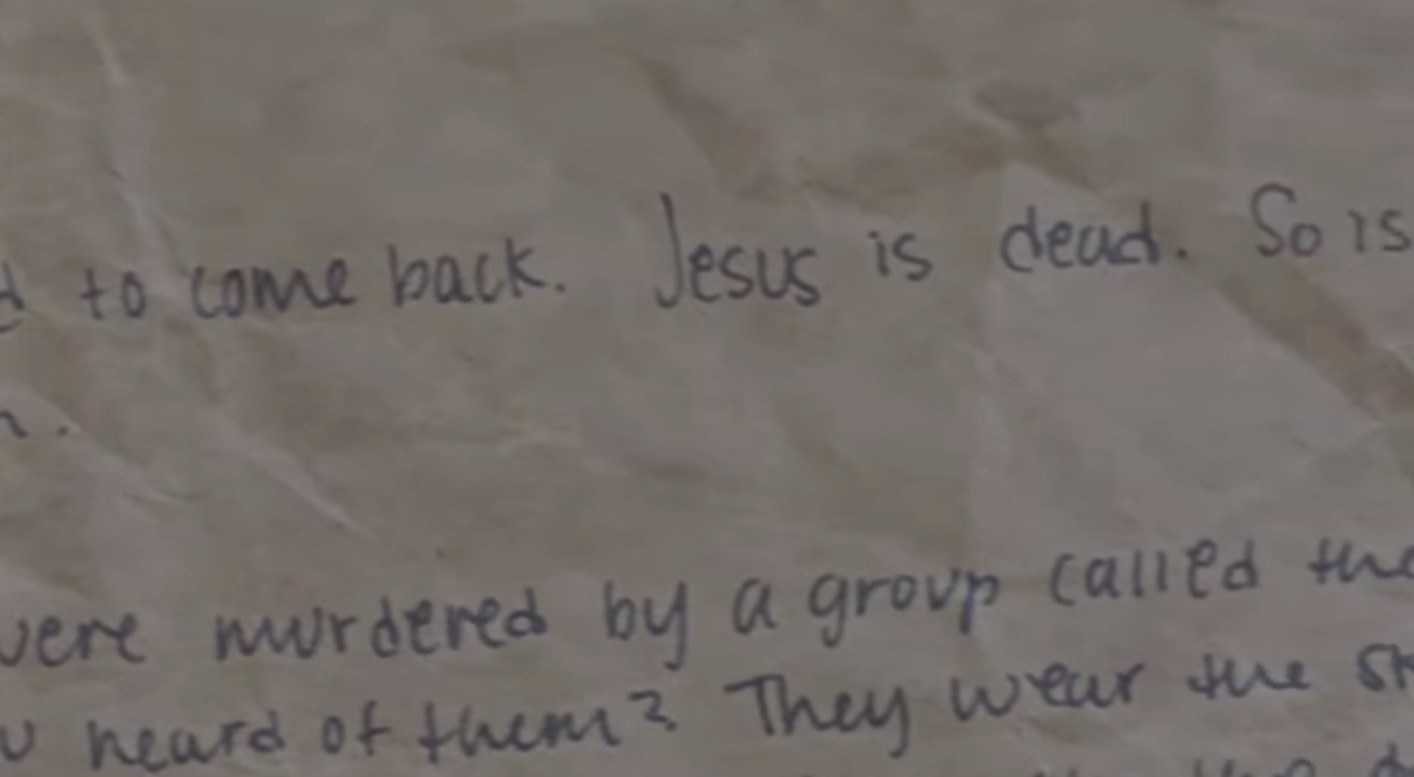 to come back. Jesus is dead. So is
were murdered by a group called the
heard of them? They wear the